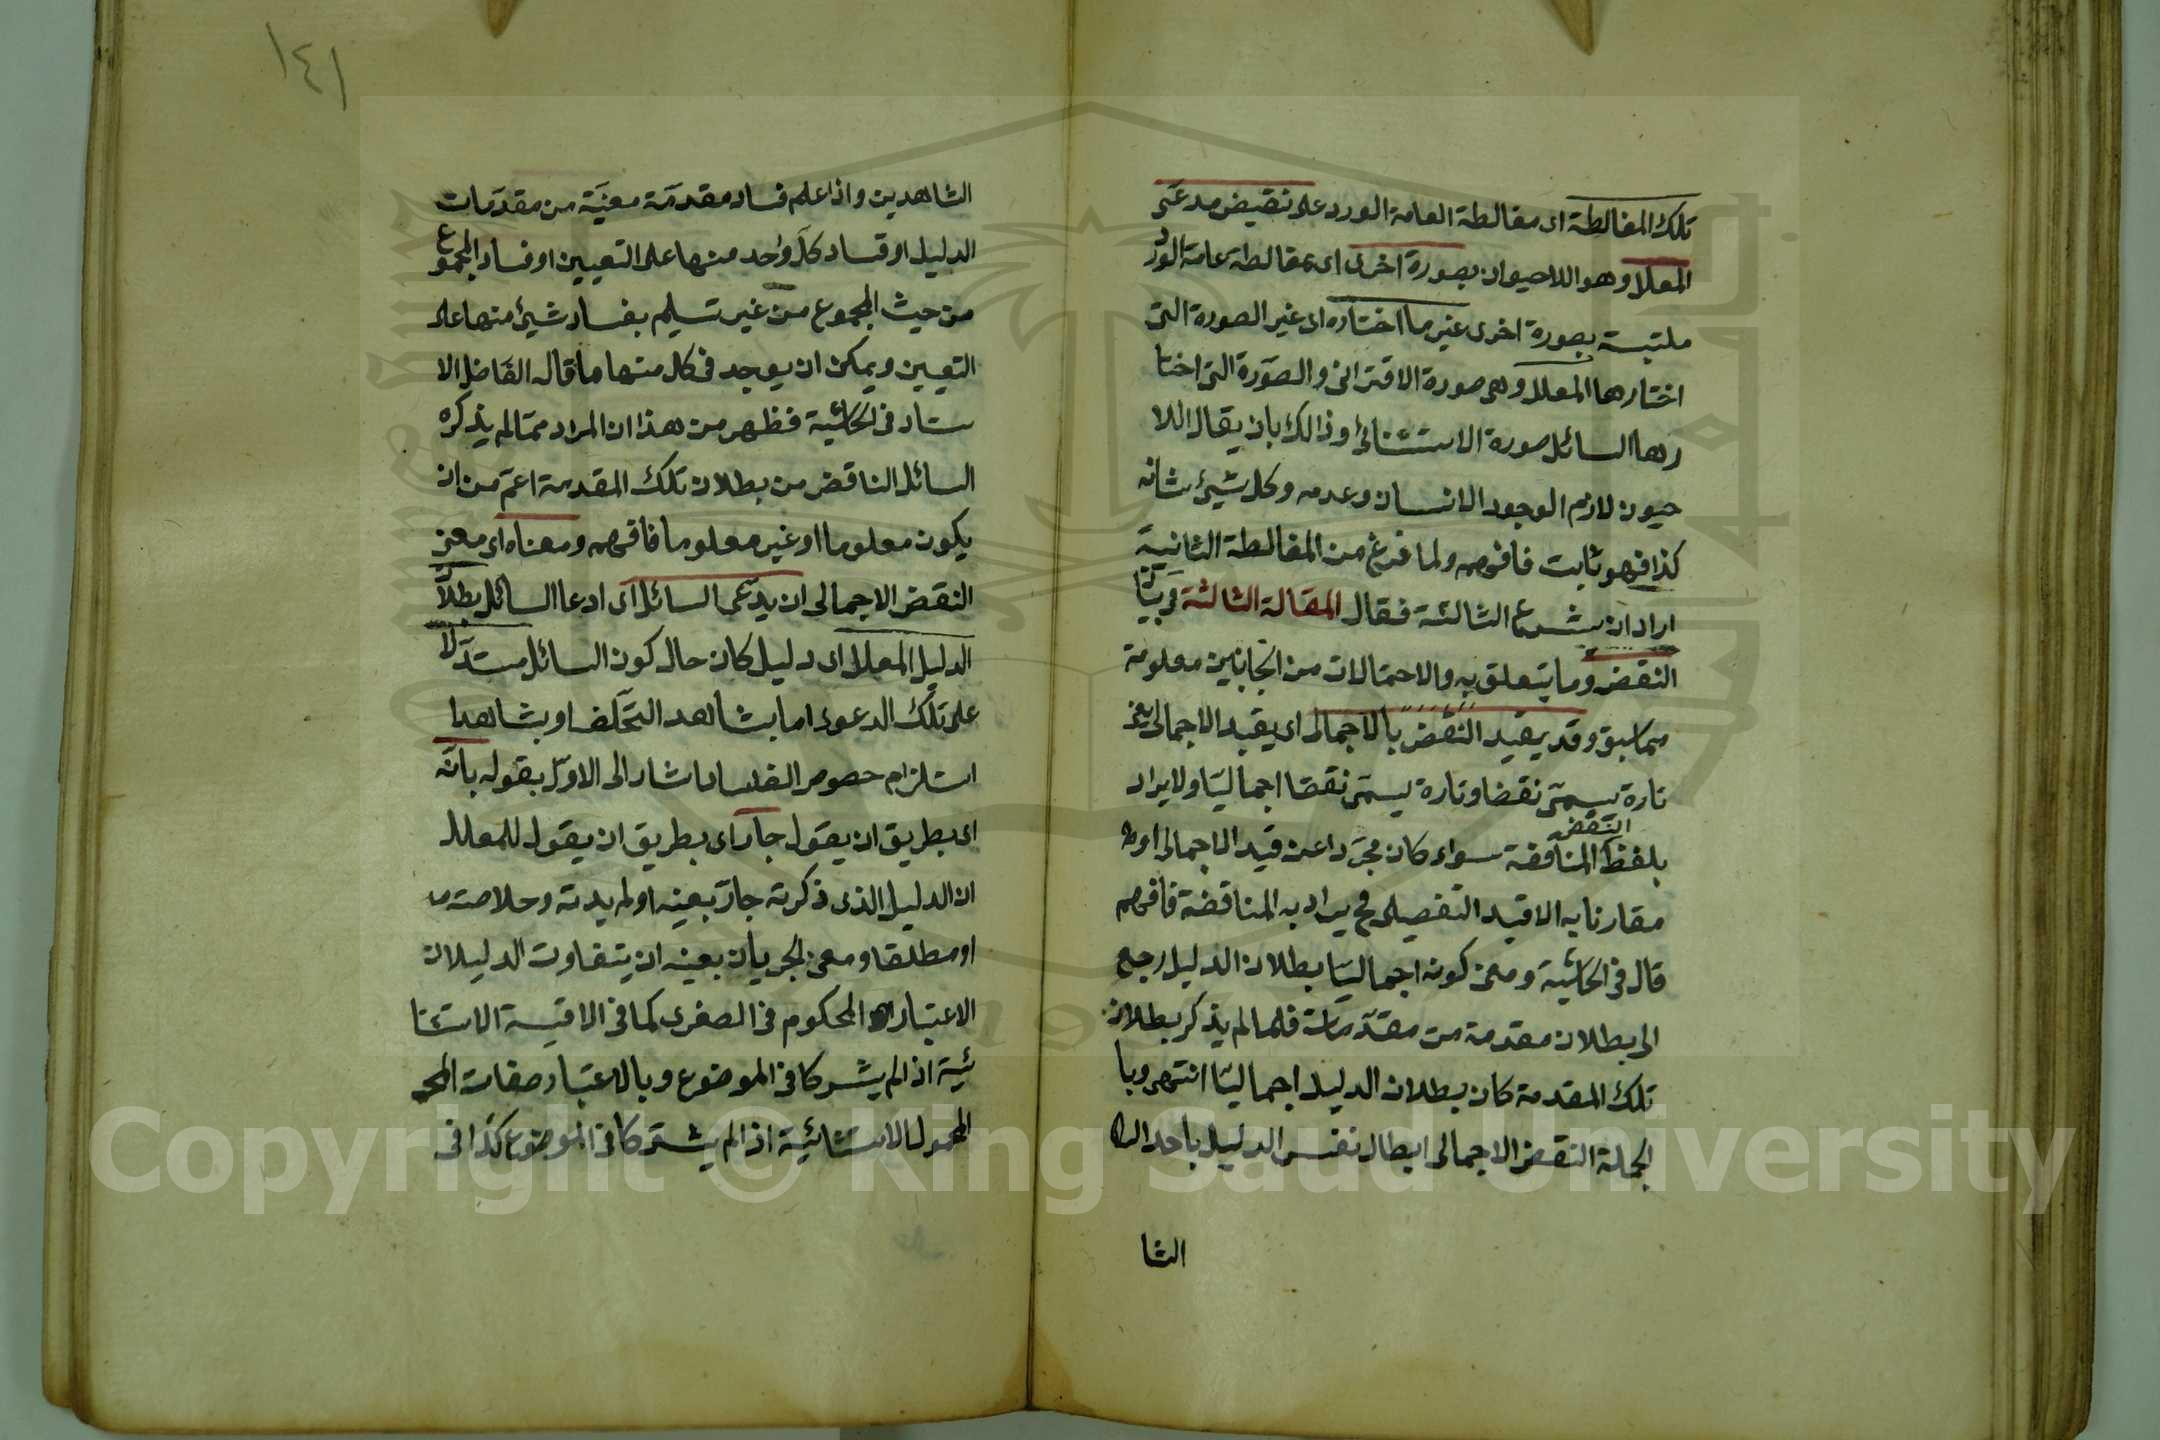 تلك المغالطة اى مغالطة العامة الورد على نقيض مدعى
المعلل وهو اللاحيوان بصورة اخرى اى بمغالطة عامة الورد
ملتبسة بصورة اخرى غير ما اختاره اى غير الصورة التى
اختارها المعلل وهى صورة الاقترانى والصورة التى اختا
رها السائل صورة الاستثنائى وذالك بان يقال اللا
حيون لازم الوجود الانسان وعدمه وكل شيئ شانه
كذا فهو ثابت فافهم ولما فرغ من المغالطة الثانية
اراد ان يشرع الثالثة فقال المقالة الثالثة فى بيان
النقض وما يتعلق به والاحتمالات من الجانبين معلومة
مما سبق وقد يقيد النقض بالاجمالى اى يقيد الاجمالى يعنى
تارة يسمى نقضا وتارة يسمى نقضا اجماليا ولا يراد
النقض
بلفظ المناقضة سواء كان مجردا عن قيد الاجمالى او
مقارنا به الا قيد التفصيلى فح يراد به المناقضة فافهم
قال فى الحاشية ومعنى كونه اجماليا بطلان الدليل رجع
الى بطلان مقدمة من مقدماته فلما لم يذكر بطلان
تلك المقدمة كان بطلان الدليل اجماليا انتهى وبا
لجملة النقض الاجمالى ابطال نفس الدليل باحد
الشا
١٤١
الشاهدين واذا علم فساد مقدمة معنية من مقدمات
الدليل او فساد كل واحد منها على التعيين او فساد المجموع
من حيث المجموع من غير تسليم بفساد شيئ منها على
التعيين ويمكن ان يوجد فى كل منها ما قاله الفاضل الا
ستاد فى الحاشية فظهر من هذا ان المراد مما لم يذكره
السائل الناقض من بطلان تلك المقدمة اعم من ان
يكون معلوما او غير معلوما فافهم ومعناه اى معنى
النقض الاجمالى ان يدعى السائل اى ادعا السائل بطلان
الدليل المعلل اى دليل كان حال كون السائل مستدلا
على تلك الدعوى اما بشاهد التخلف او بشاهد
استلزام خصوص الفساد اشار الى الاول بقوله بانه
اى بطريق ان يقول جار اى بطريق ان يقول للمعلل
ان الدليل الذى ذكرته جار بعينه او
او مطلقا ومعنى الجريان بعينه ان يتفاوت الدليلان
الاعتبار المحكوم فى الصغرى كما فى الاقيسة الاستثنا
ئية اذ لم يشتركا فى الموضوع وبالاعتبار صفات المح
المحمول الاستثنائية اذ لم يشتركا فى الموضوع كذا فى
Copyright © King Saud University